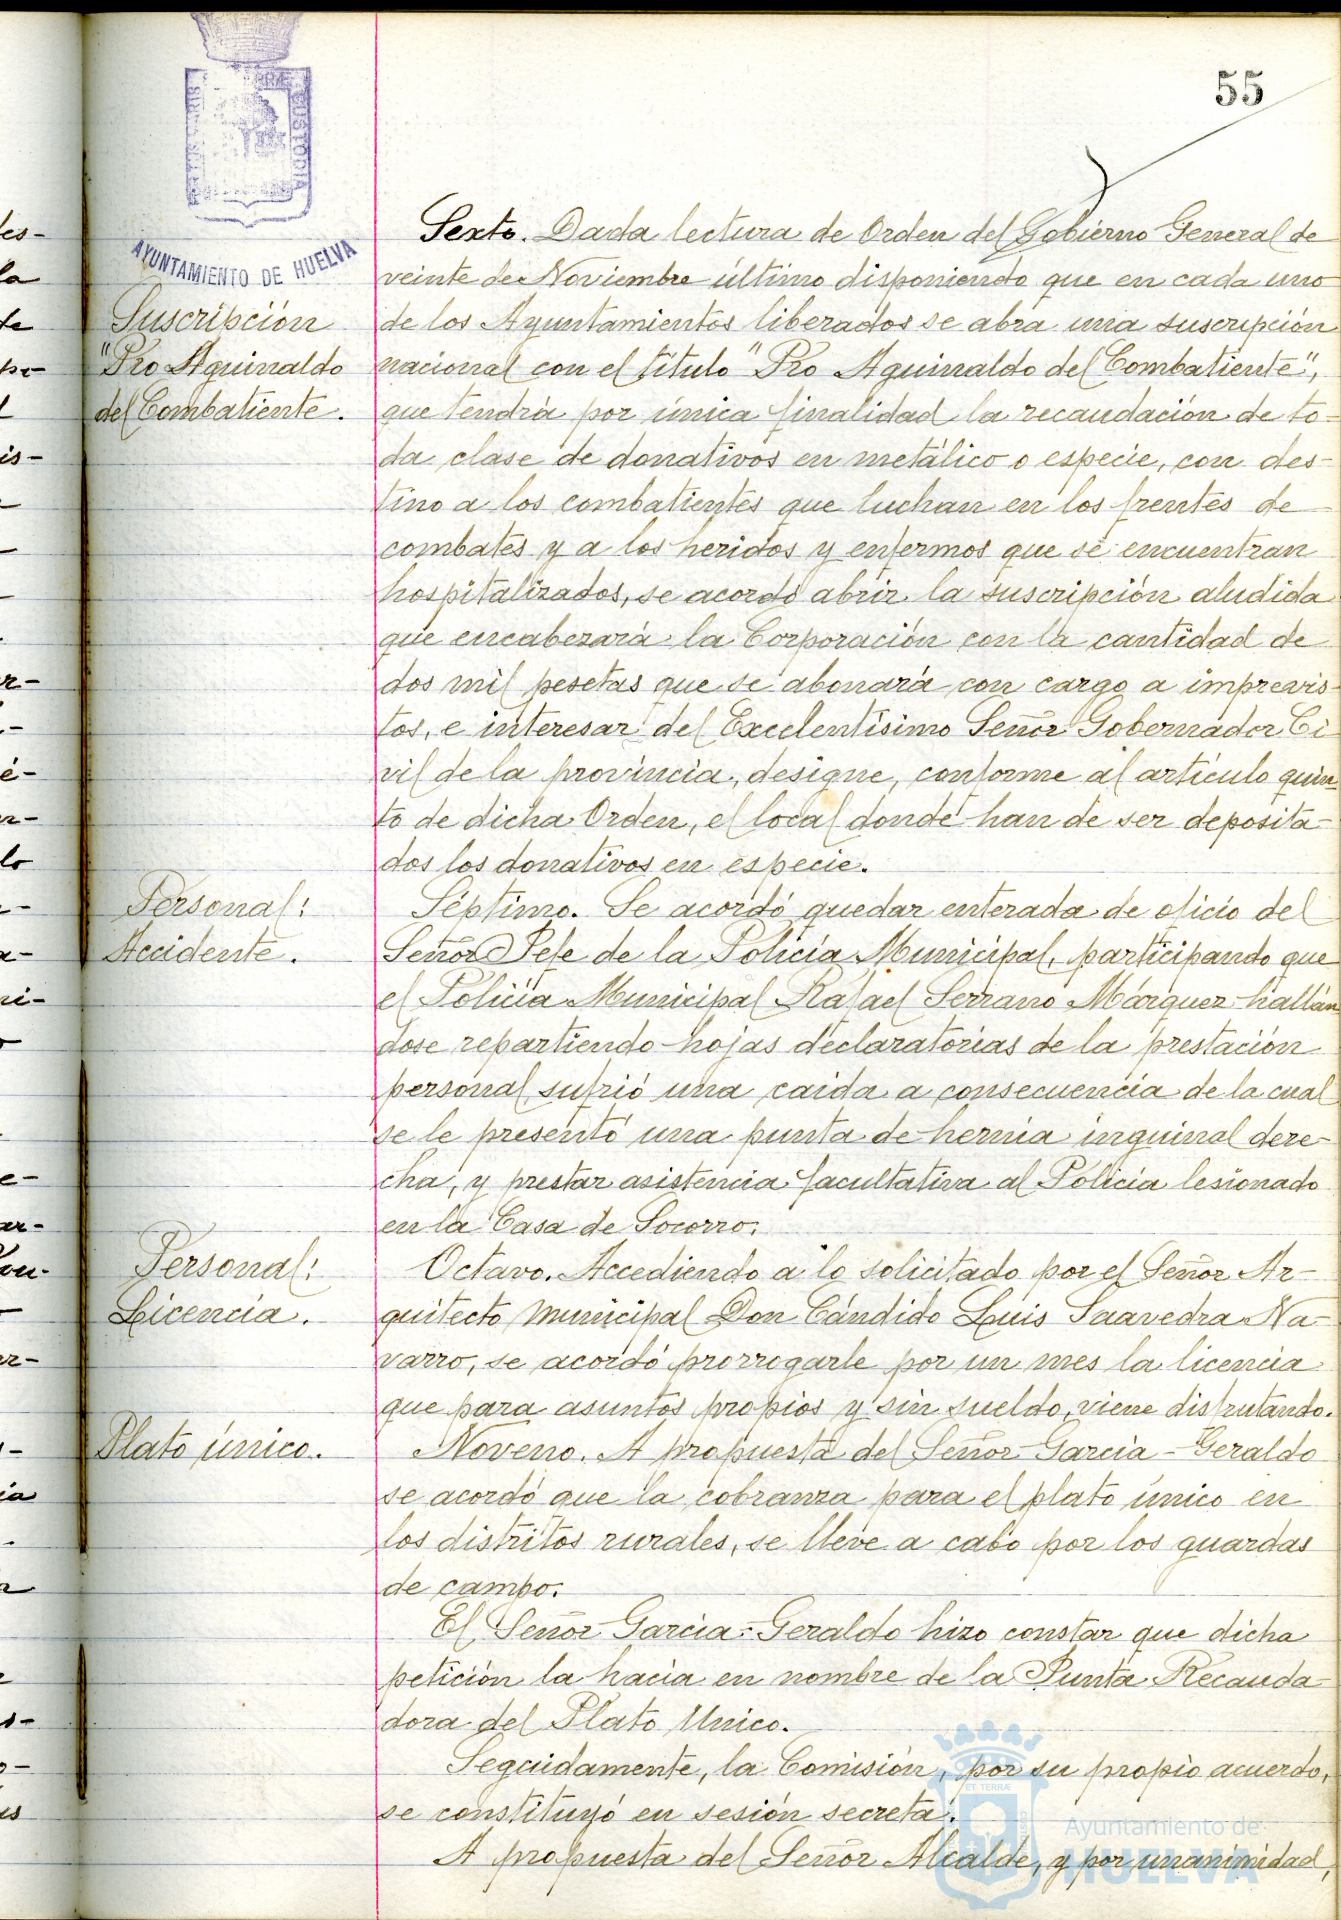 55
CUSTODIA
AYUNTAMIENTO DE HUELVA
Suscripción
"Pro Aguinaldo
del Combatiente.
Sexto. Dada lectura de Orden del Gobierno General de
veinte de Noviembre último disponiendo que en cada uno
de los Ayuntamientos liberados se abra una suscripción
nacional con el título "Pro Aguinaldo del Combatiente",
que tendrá por única finalidad la recaudación de to-
da clase de donativos en metálico o especie, con des-
tino a los combatientes que luchan en los frentes de
combates y a los heridos y enfermos que se encuentran
hospitalizados, se acordó abrir la suscripción aludida
que encabezará la Corporación con la cantidad de
dos mil pesetas que se abonará con cargo a imprevis-
tos, e interesar del Excelentísimo Señor Gobernador Ci-
vil de la provincia, designe, conforme al artículo quin-
to de dicha Orden, el local donde han de ser deposita-
dos los donativos en especie.
Personal:
Accidente.
Séptimo. Se acordó quedar enterada de oficio del
Señor Jefe de la Policía Municipal, participando que
el Policía Municipal Rafael Serrano Márquez hallán
dose repartiendo hojas declaratorias de la prestación
personal sufrió una caida a consecuencia de la cual
se le presentó una punta de hernia inguinal dere-
cha, y prestar asistencia facultativa al Policía lesionado
en la Casa de Socorro.
Personal:
Licencia.
Octavo. Accediendo a lo solicitado por el Señor Ar-
quitecto municipal Don Cándido Luis Saavedra Na-
varro, se acordó prorrogarle por un mes la licencia
que para asuntos propios y sin sueldo, viene disfrutando.
Plato único.
Noveno. A propuesta del Señor García-Geraldo
se acordó que la cobranza para el plato único en
los distritos rurales, se lleve a cabo por los guardas
de campo.
El Señor García-Geraldo hizo constar que dicha
petición la hacía en nombre de la Junta Recauda-
dora del Plato Unico.
Seguidamente, la Comisión, por su propio acuerdo,
se constituyó en sesión secreta.
A propuesta del Señor Alcalde, y por unanimidad,
ET TERRÆ
Ayuntamiento de
HUELVA